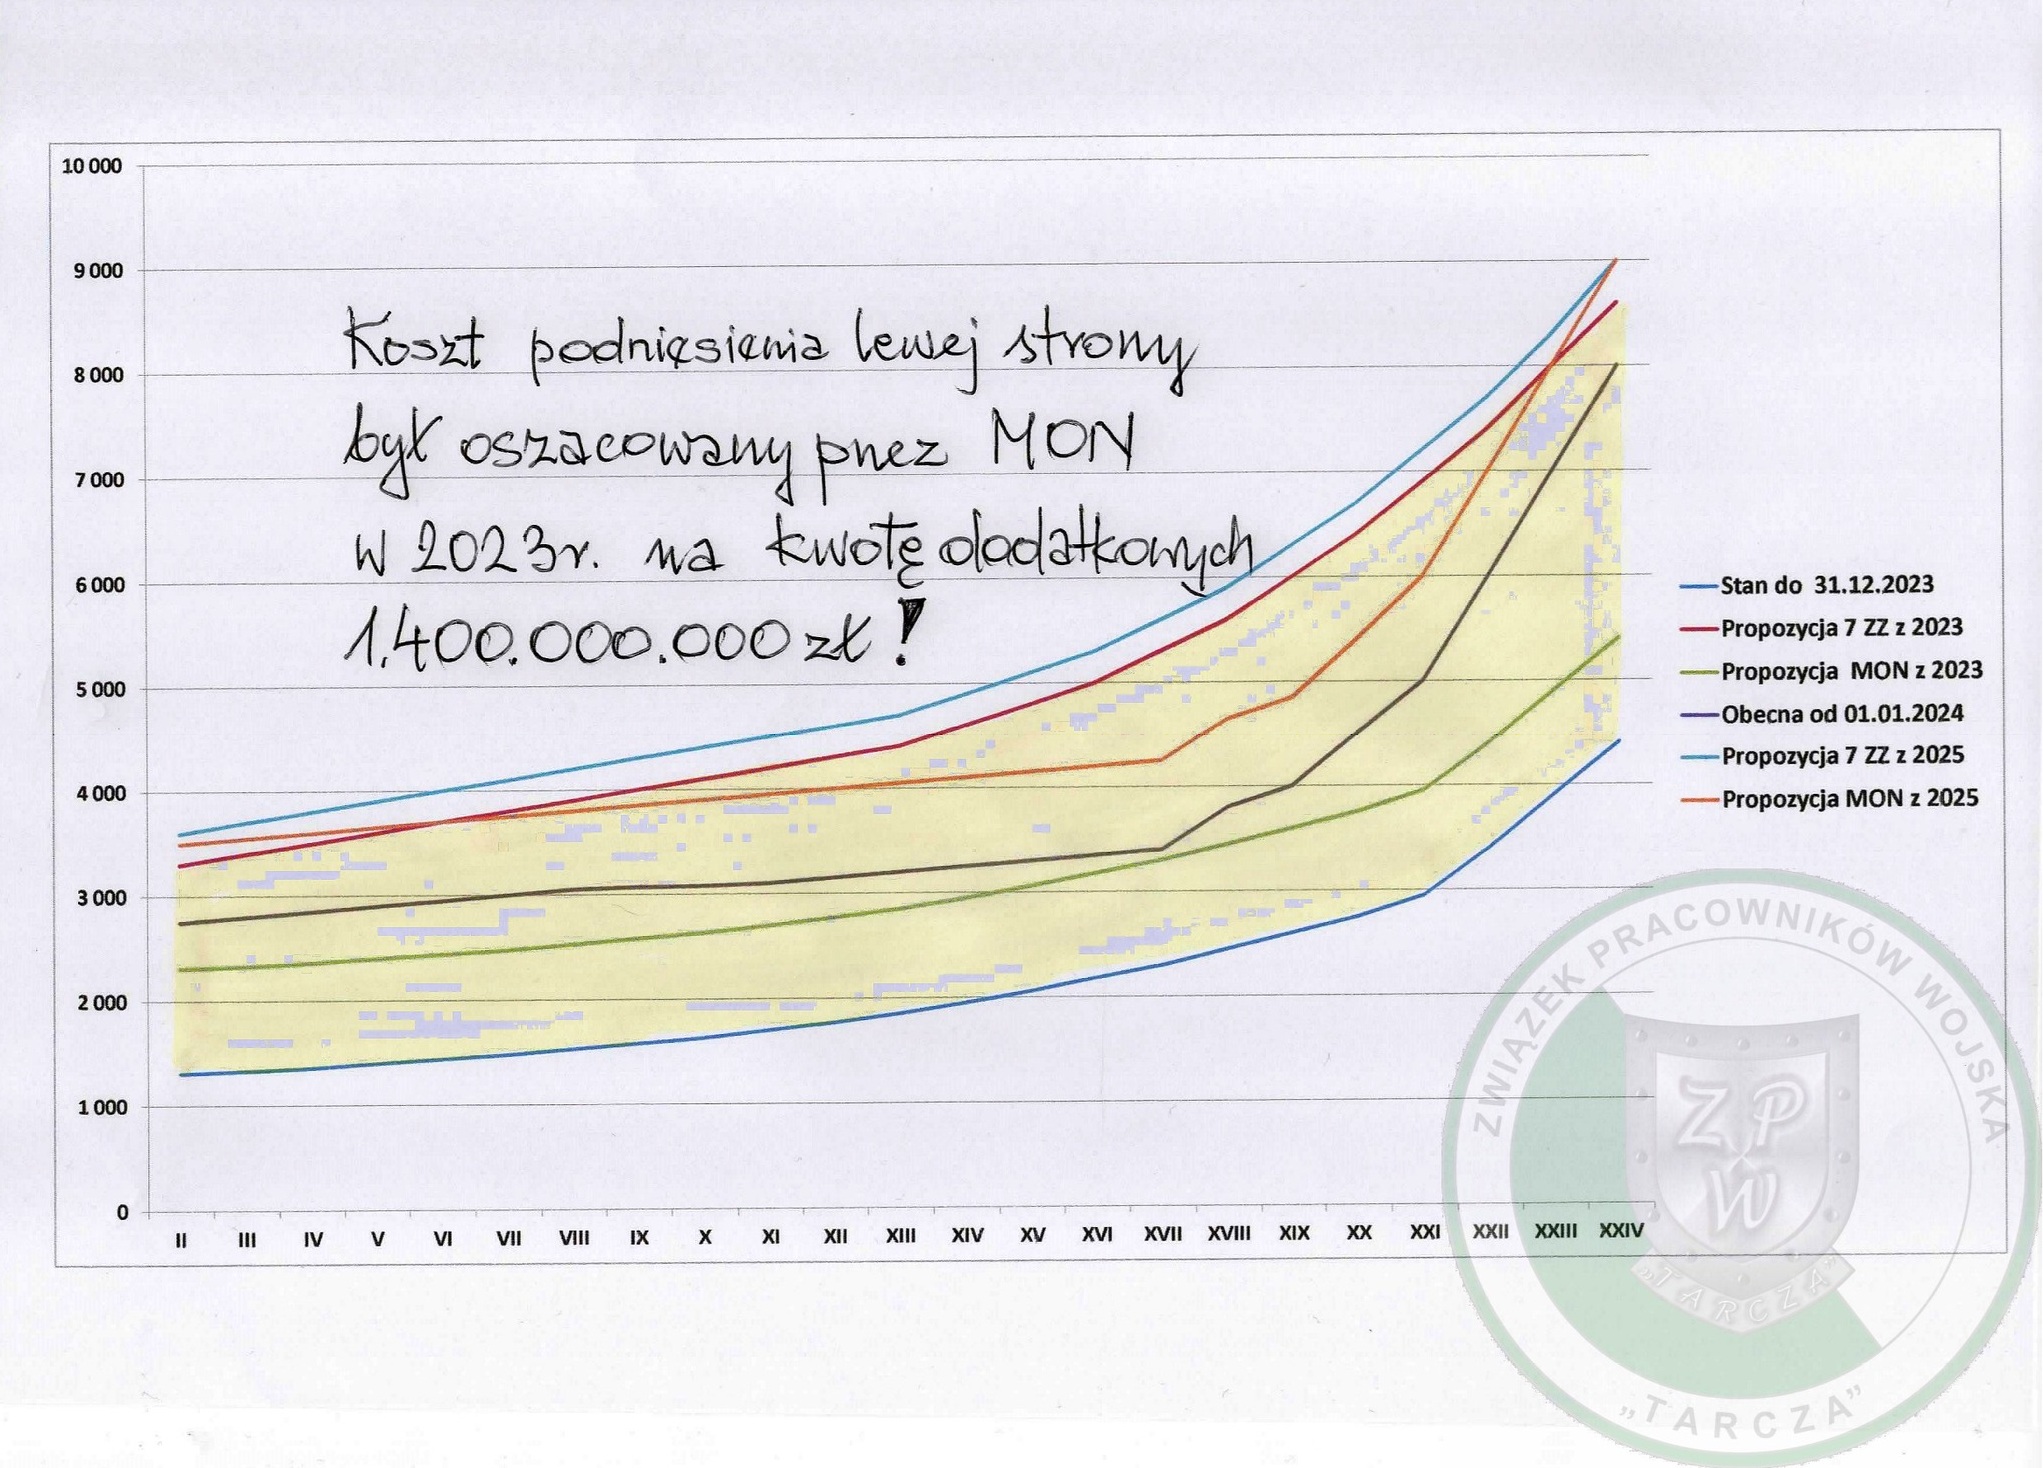 10 000
9 000
8 000
7 000
6 000
5 000
4 000
3 000
2 000
1 000
0
Koszt podniesienia lewej strony
był oszacowany przez MON
w 2023r. na kwotę dodatkowych
1.400.000.000 zł!
Stan do 31.12.2023
Propozycja 7 ZZ z 2023
Propozycja MON z 2023
Obecna od 01.01.2024
Propozycja 7 ZZ z 2025
Propozycja MON z 2025
II III IV V VI VII VIII IX X XI XII XIII XIV XV XVI XVII XVIII XIX XX XXI XXII XXIII XXIV
ZWIĄZEK PRACOWNIKÓW WOJSKA
Z P
W
„TARCZA”
„TARCZA”